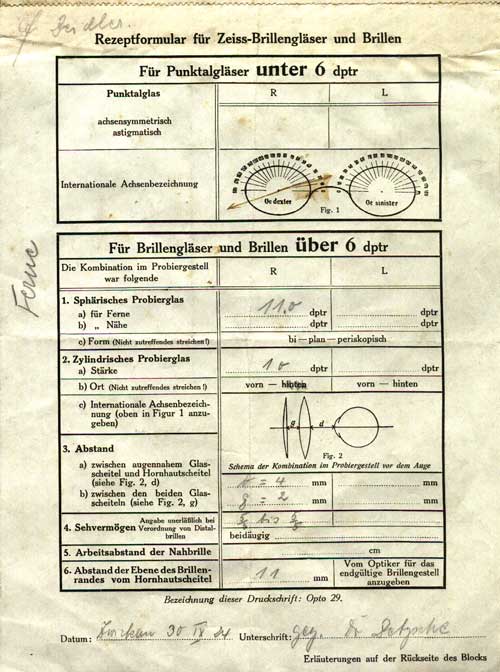 Rezeptformular für Zeiss-Brillengläser und Brillen
Für Punktalgläser unter 6 dptr
Punktalglas R L
achsensymmetrisch
astigmatisch
Internationale Achsenbezeichnung
Oc dexter Oc sinister
Fig. 1
Ferne
Für Brillengläser und Brillen über 6 dptr
Die Kombination im Probiergestell
war folgende R L
1. Sphärisches Probierglas
a) für Ferne 11,0 dptr dptr
b) „ Nähe dptr dptr
c) Form (Nicht zutreffendes streichen!) bi – plan – periskopisch
2. Zylindrisches Probierglas
a) Stärke 10 dptr dptr
b) Ort (Nicht zutreffendes streichen!) vorn – hinten vorn – hinten
c) Internationale Achsenbezeich-
nung (oben in Figur 1 anzu-
geben)
g d
Fig. 2
Schema der Kombination im Probiergestell vor dem Auge
3. Abstand
a) zwischen augennahem Glas-
scheitel und Hornhautscheitel
(siehe Fig. 2, d) = 4 mm mm
b) zwischen den beiden Glas-
scheiteln (siehe Fig. 2, g) g = 2 mm mm
4. Sehvermögen Angabe unerläßlich bei
Verordnung von Distal-
brillen bis
beidäugig
5. Arbeitsabstand der Nahbrille cm
6. Abstand der Ebene des Brillen-
randes vom Hornhautscheitel 11 mm
Vom Optiker für das
endgültige Brillengestell
anzugeben
Bezeichnung dieser Druckschrift: Opto 29.
Datum: Zwickau 30 IX 34 Unterschrift: gez. Dr
Erläuterungen auf der Rückseite des Blocks